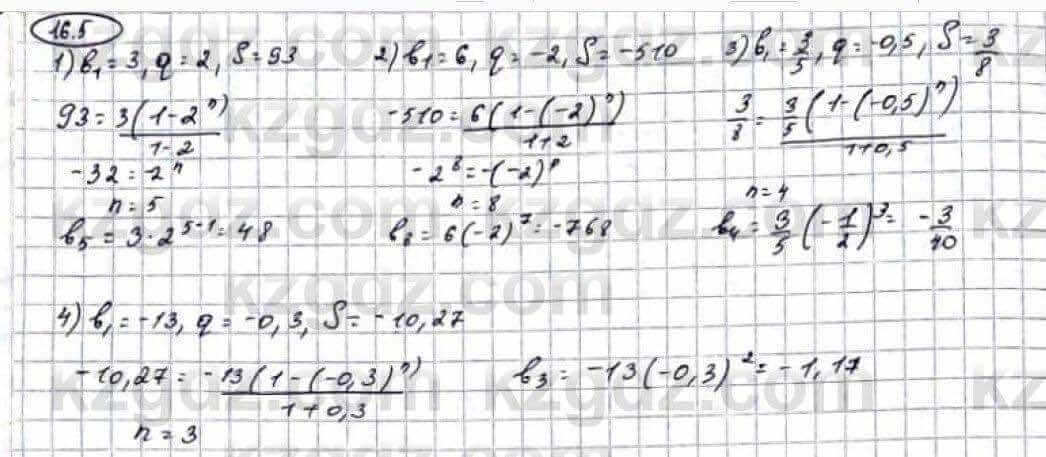 16.5
1) b₁ = 3, q = 2, S = 93
93 = 3(1-2ⁿ) / 1-2
-32 = -2ⁿ
n = 5
b₅ = 3·2⁵⁻¹ = 48
2) b₁ = 6, q = -2, S = -510
-510 = 6(1-(-2)ⁿ) / 1+2
-2⁸ = -(-2)ⁿ
n = 8
b₈ = 6(-2)⁷ = -768
3) b₁ = 3/5, q = -0,5, S = 3/8
3/8 = 3/5(1-(-0,5)ⁿ) / 1+0,5
n = 4
b₄ = 3/5(-1/2)³ = -3/40
4) b₁ = -13, q = -0,3, S = -10,27
-10,27 = -13(1-(-0,3)ⁿ) / 1+0,3
n = 3
b₃ = -13(-0,3)² = -1,17
kzgdz.com